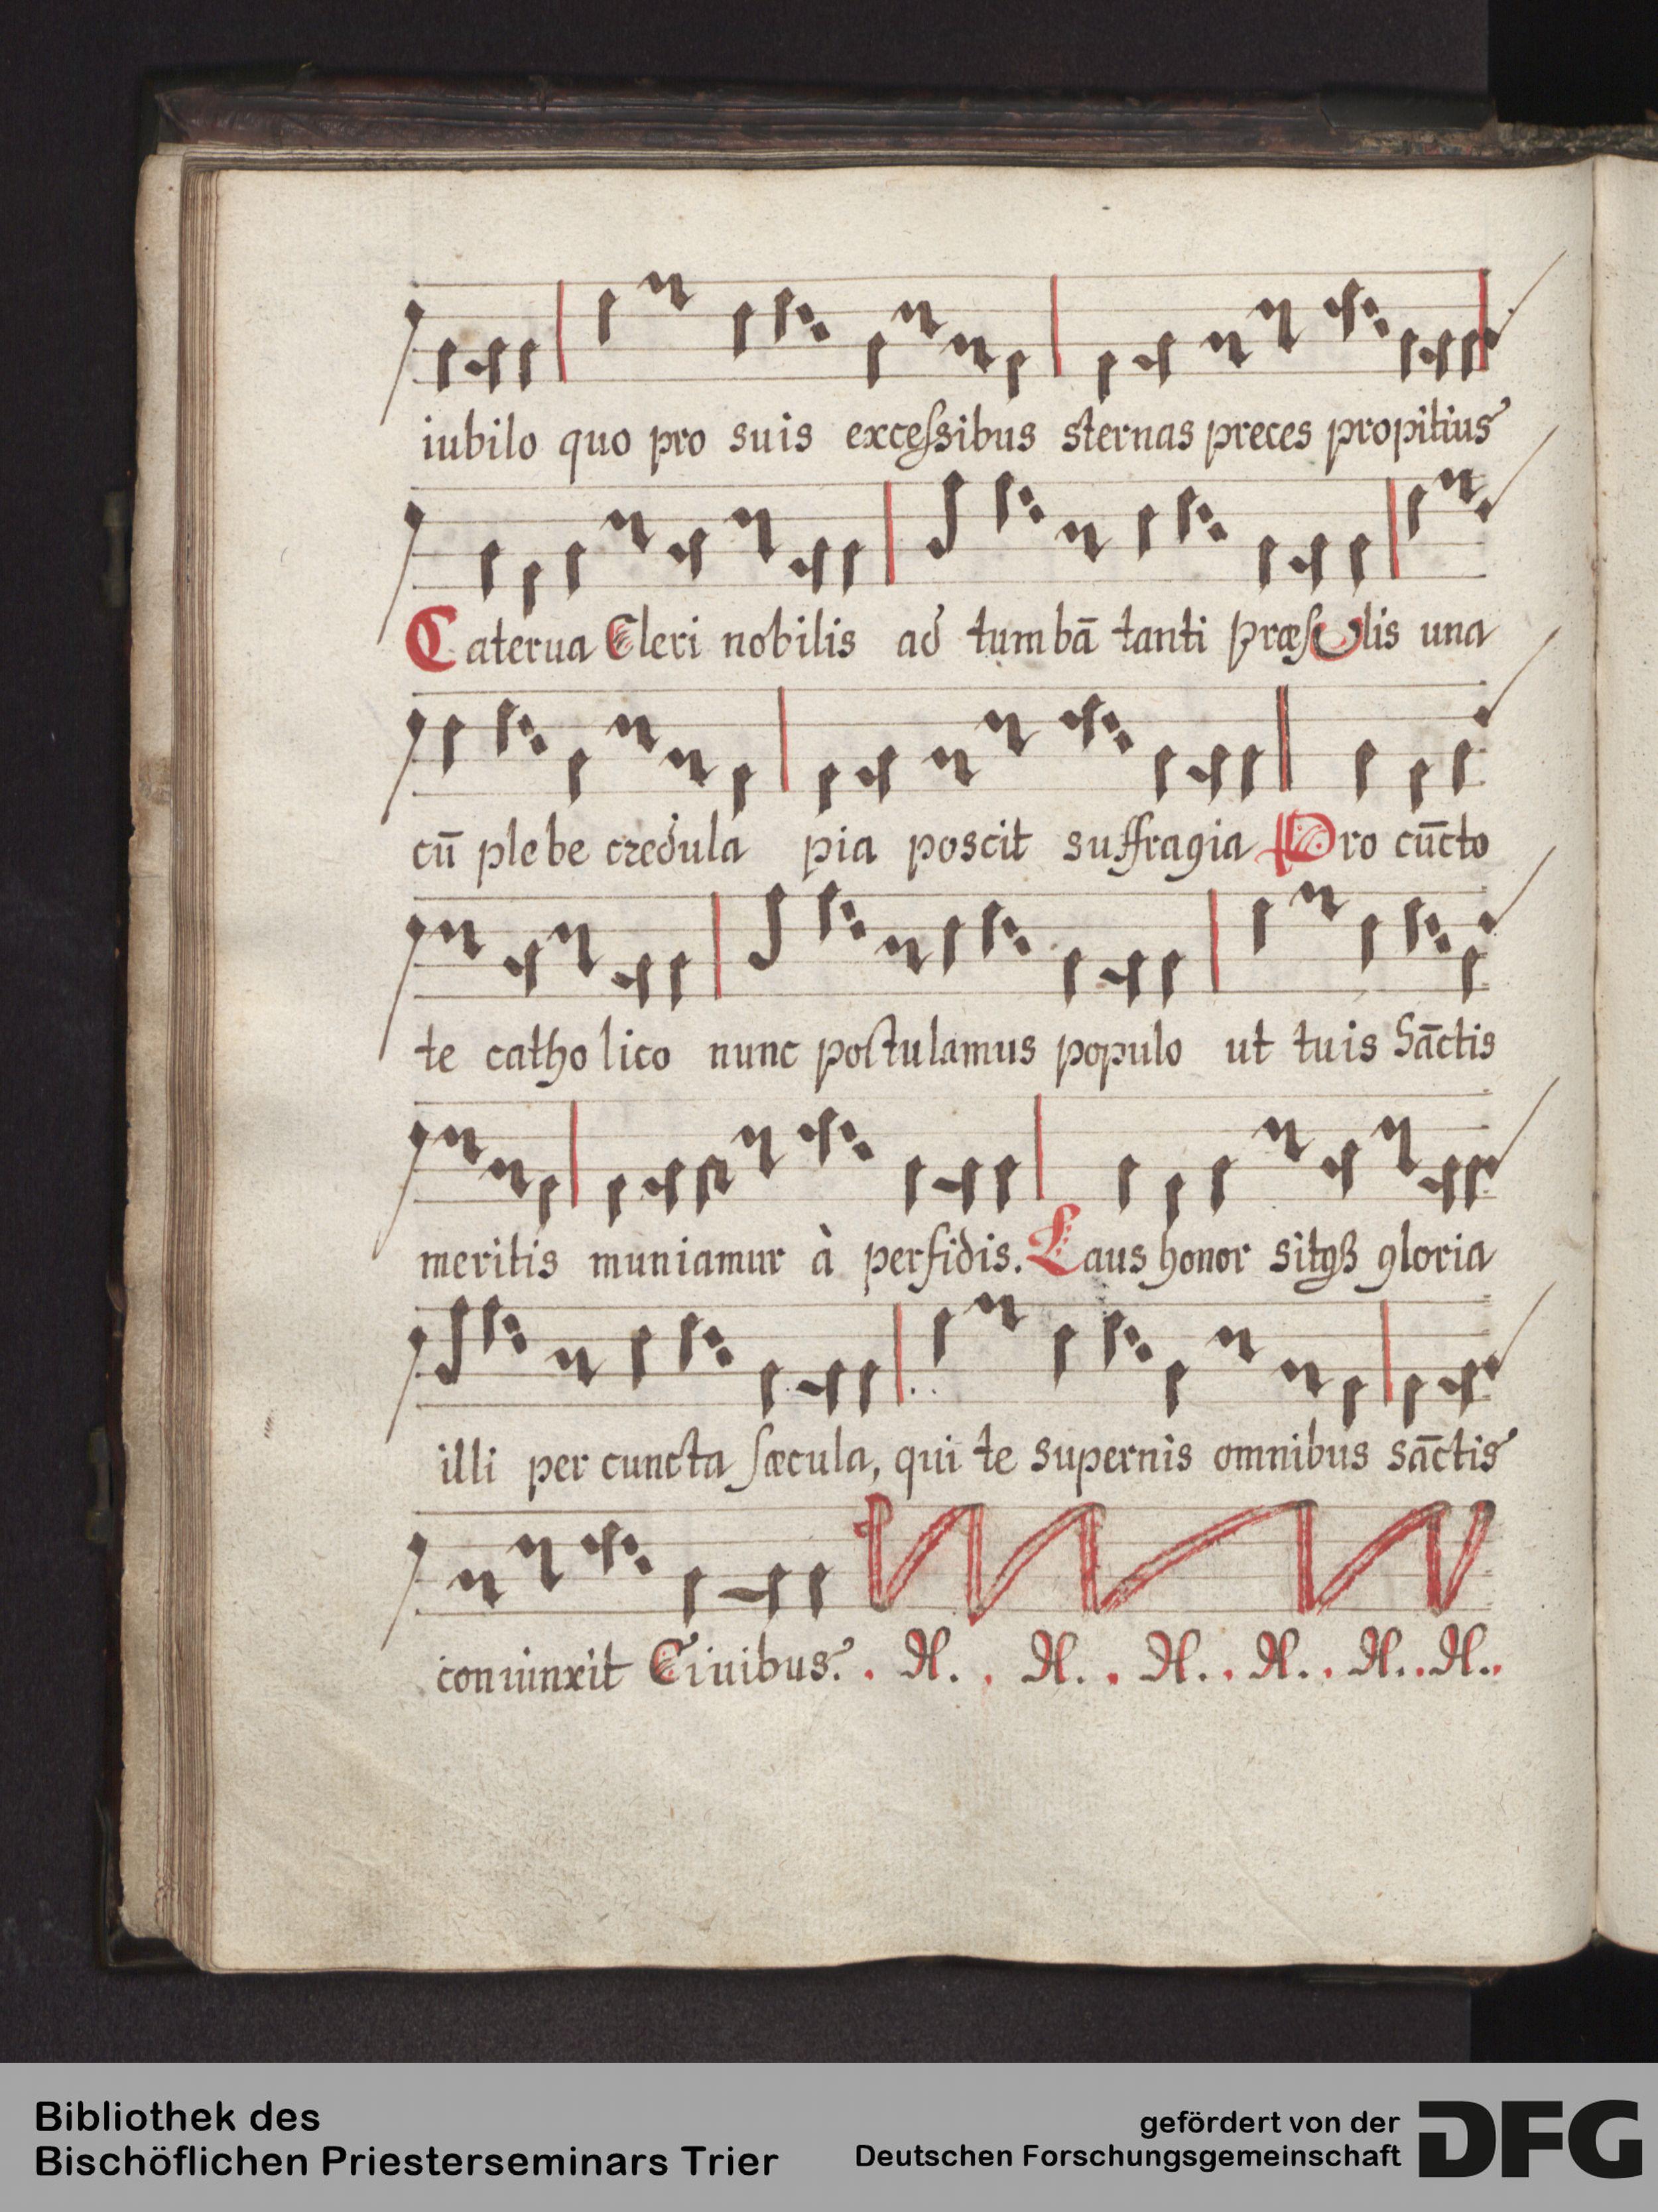 iubilo quo pro suis exceſsibus sternas preces propitius
Caterua Cleri nobilis ad tumbā tanti præſulis una
cū plebe credula pia poscit suffragia Pro cūcto
te catholico nunc poſtulamus populo ut tuis Sāctis
meritis muniamur à perfidis. Laus honor sitqȝ gloria
illi per cuncta ſæcula, qui te supernis omnibus sāctis
coniunxit Ciuibus.
Bibliothek des
Bischöflichen Priesterseminars Trier
gefördert von der
Deutschen Forschungsgemeinschaft
DFG